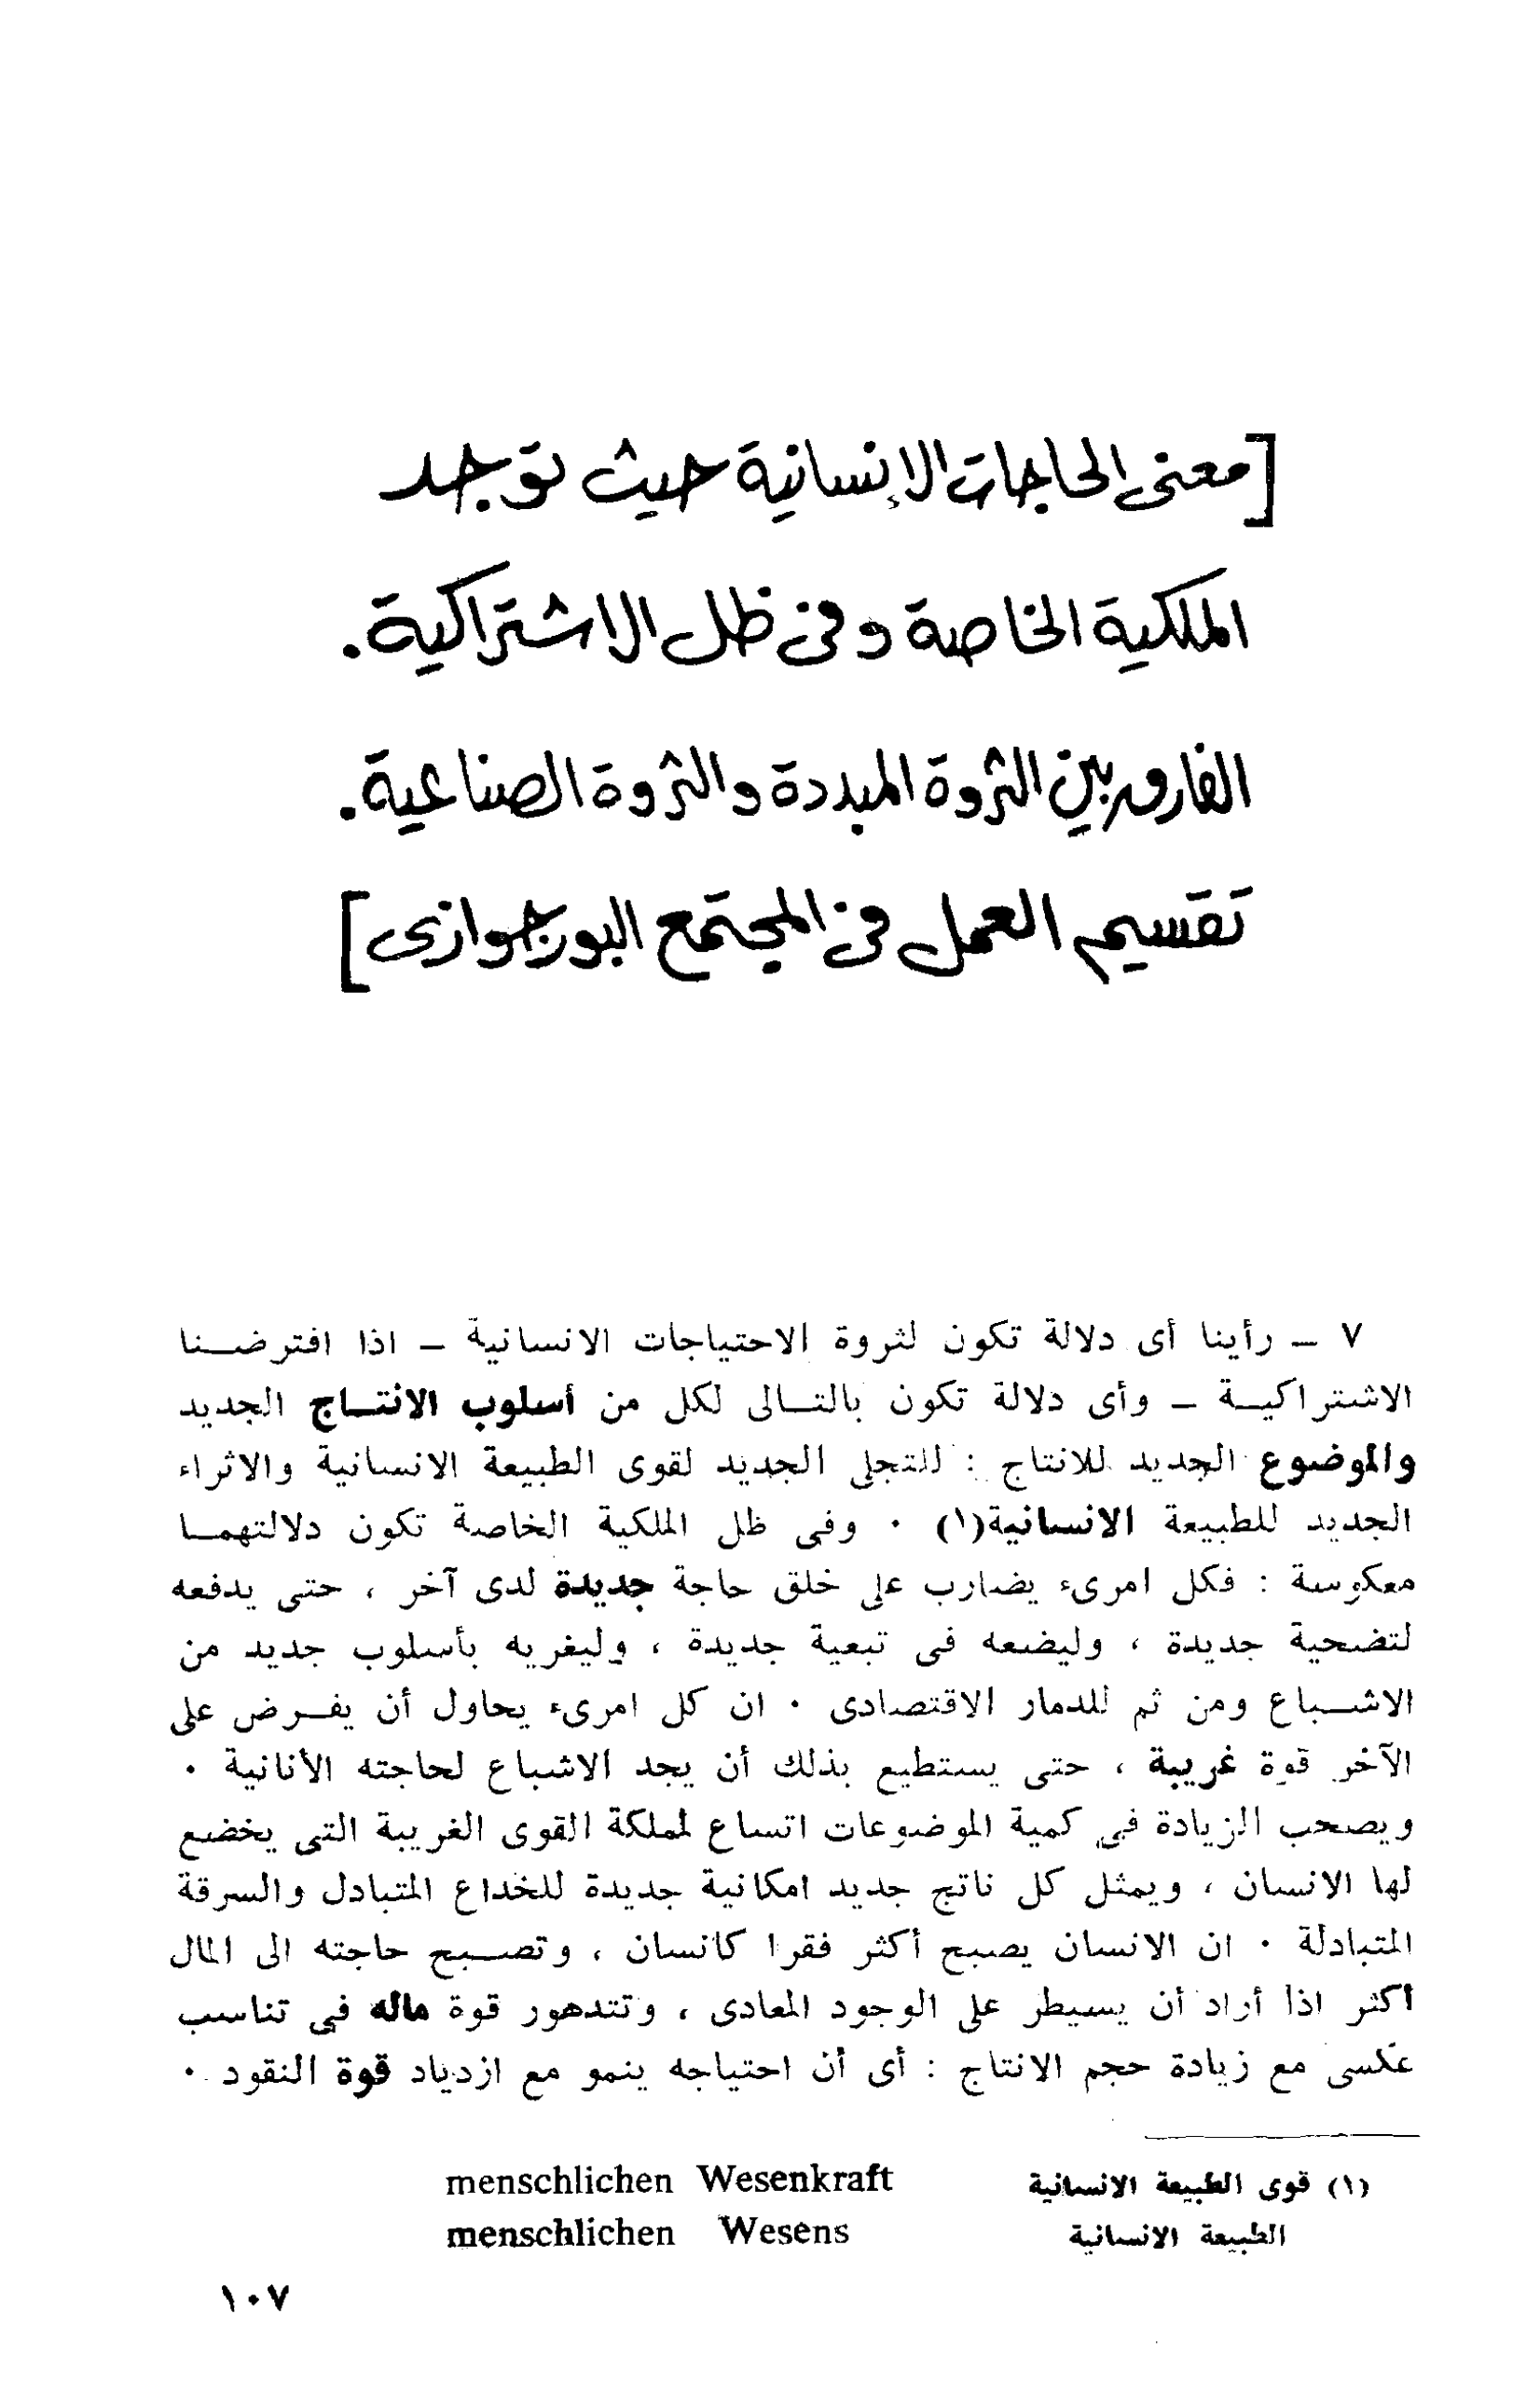 [معنى الحاجات الإنسانية حيث توجد
الملكية الخاصة وفى ظل الاشتراكية.
الفارق بين الثروة المبددة والثروة الصناعية.
تقسيم العمل فى المجتمع البورجوازى]
٧ – رأينا أى دلالة تكون لثروة الاحتياجات الانسانية – اذا افترضــنا
الاشتراكيــة – وأى دلالة تكون بالتــالى لكل من أسلوب الانتــاج الجديد
والموضوع الجديد للانتاج : للتجلى الجديد لقوى الطبيعة الانسانية والاثراء
الجديد للطبيعة الانسانية(١) ٠ وفى ظل الملكية الخاصة تكون دلالتهمــا
معكوسة : فكل امرىء يضارب على خلق حاجة جديدة لدى آخر ، حتى يدفعه
لتضحية جديدة ، وليضعه فى تبعية جديدة ، وليغريه بأسلوب جديد من
الاشــباع ومن ثم للدمار الاقتصادى ٠ ان كل امرىء يحاول أن يفــرض على
الآخر قوة غريبة ، حتى يستطيع بذلك أن يجد الاشباع لحاجته الأنانية ٠
ويصحب الزيادة في كمية الموضوعات اتساع لمملكة القوى الغريبة التى يخضع
لها الانسان ، ويمثل كل ناتج جديد امكانية جديدة للخداع المتبادل والسرقة
المتبادلة ٠ ان الانسان يصبح أكثر فقرا كانسان ، وتصــبح حاجته الى المال
أكثر اذا أراد أن يسيطر على الوجود المعادى ، وتتدهور قوة ماله فى تناسب
عكسى مع زيادة حجم الانتاج : أى أن احتياجه ينمو مع ازدياد قوة النقود ٠
(١) قوى الطبيعة الانسانية menschlichen Wesenkraft
الطبيعة الانسانية menschlichen Wesens
١٠٧